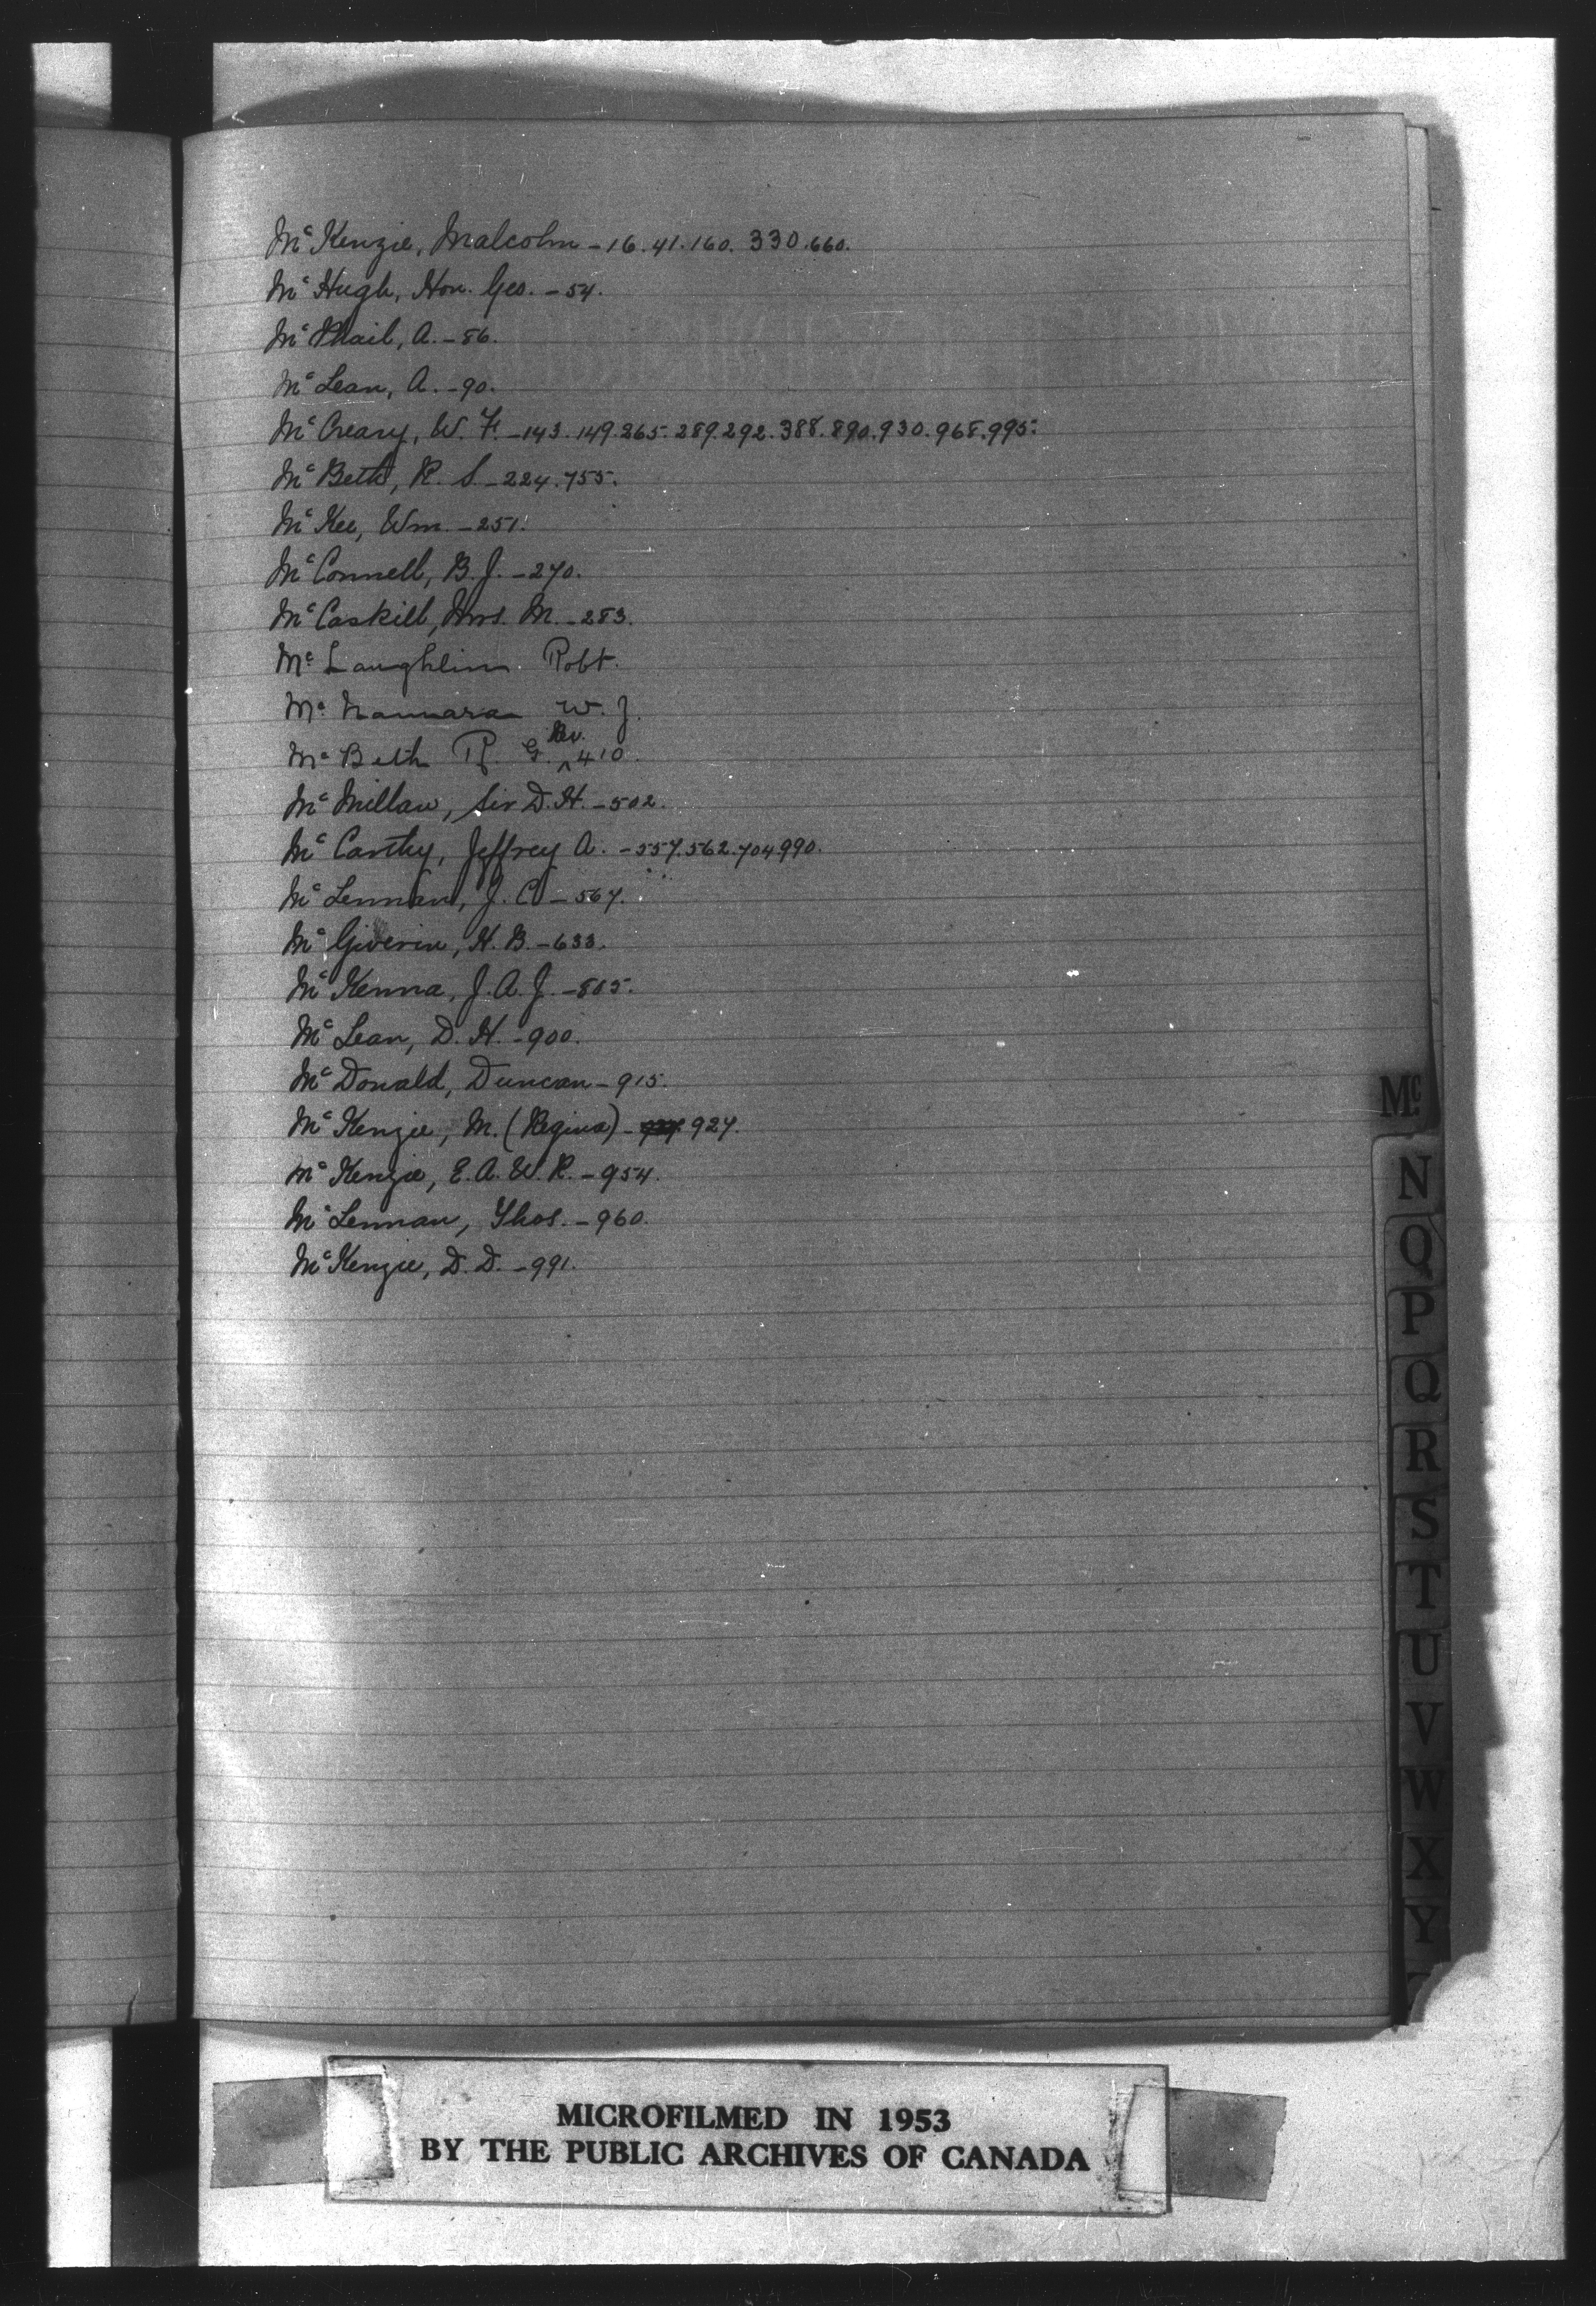 McKenzie, Malcolm - 16. 41. 160. 330. 660.
McHugh, Hon. Geo. - 54.
McPhail, A. - 86.
McLean, A. - 90.
McCreary, W. F. - 143. 149. 265. 289. 292. 388. 890. 930. 968. 995.
McBeth, R. S. - 224. 755.
McKee, Wm. - 251.
McConnell, B. J. - 270.
McCaskill, Mrs. M. - 283.
McLaughlin Robt.
McNamara W. J.
McBeth R. G. Rev. 410.
McMillan, Sir D. H. - 502.
McCarthy, Jeffrey A. - 557. 562. 704. 990.
McLennan, J. C. - 567.
McGiverin, H. B. - 633.
McKenna, J. A. J. - 805.
McLean, D. H. - 900.
McDonald, Duncan - 915.
McKenzie, M. (Regina) - 927.
McKenzie, E. A. W. R. - 954.
McLennan, Thos. - 960.
McKenzie, D. D. - 991.
Mc
N
O
P
Q
R
S
T
U
V
W
X
Y
MICROFILMED IN 1953
BY THE PUBLIC ARCHIVES OF CANADA